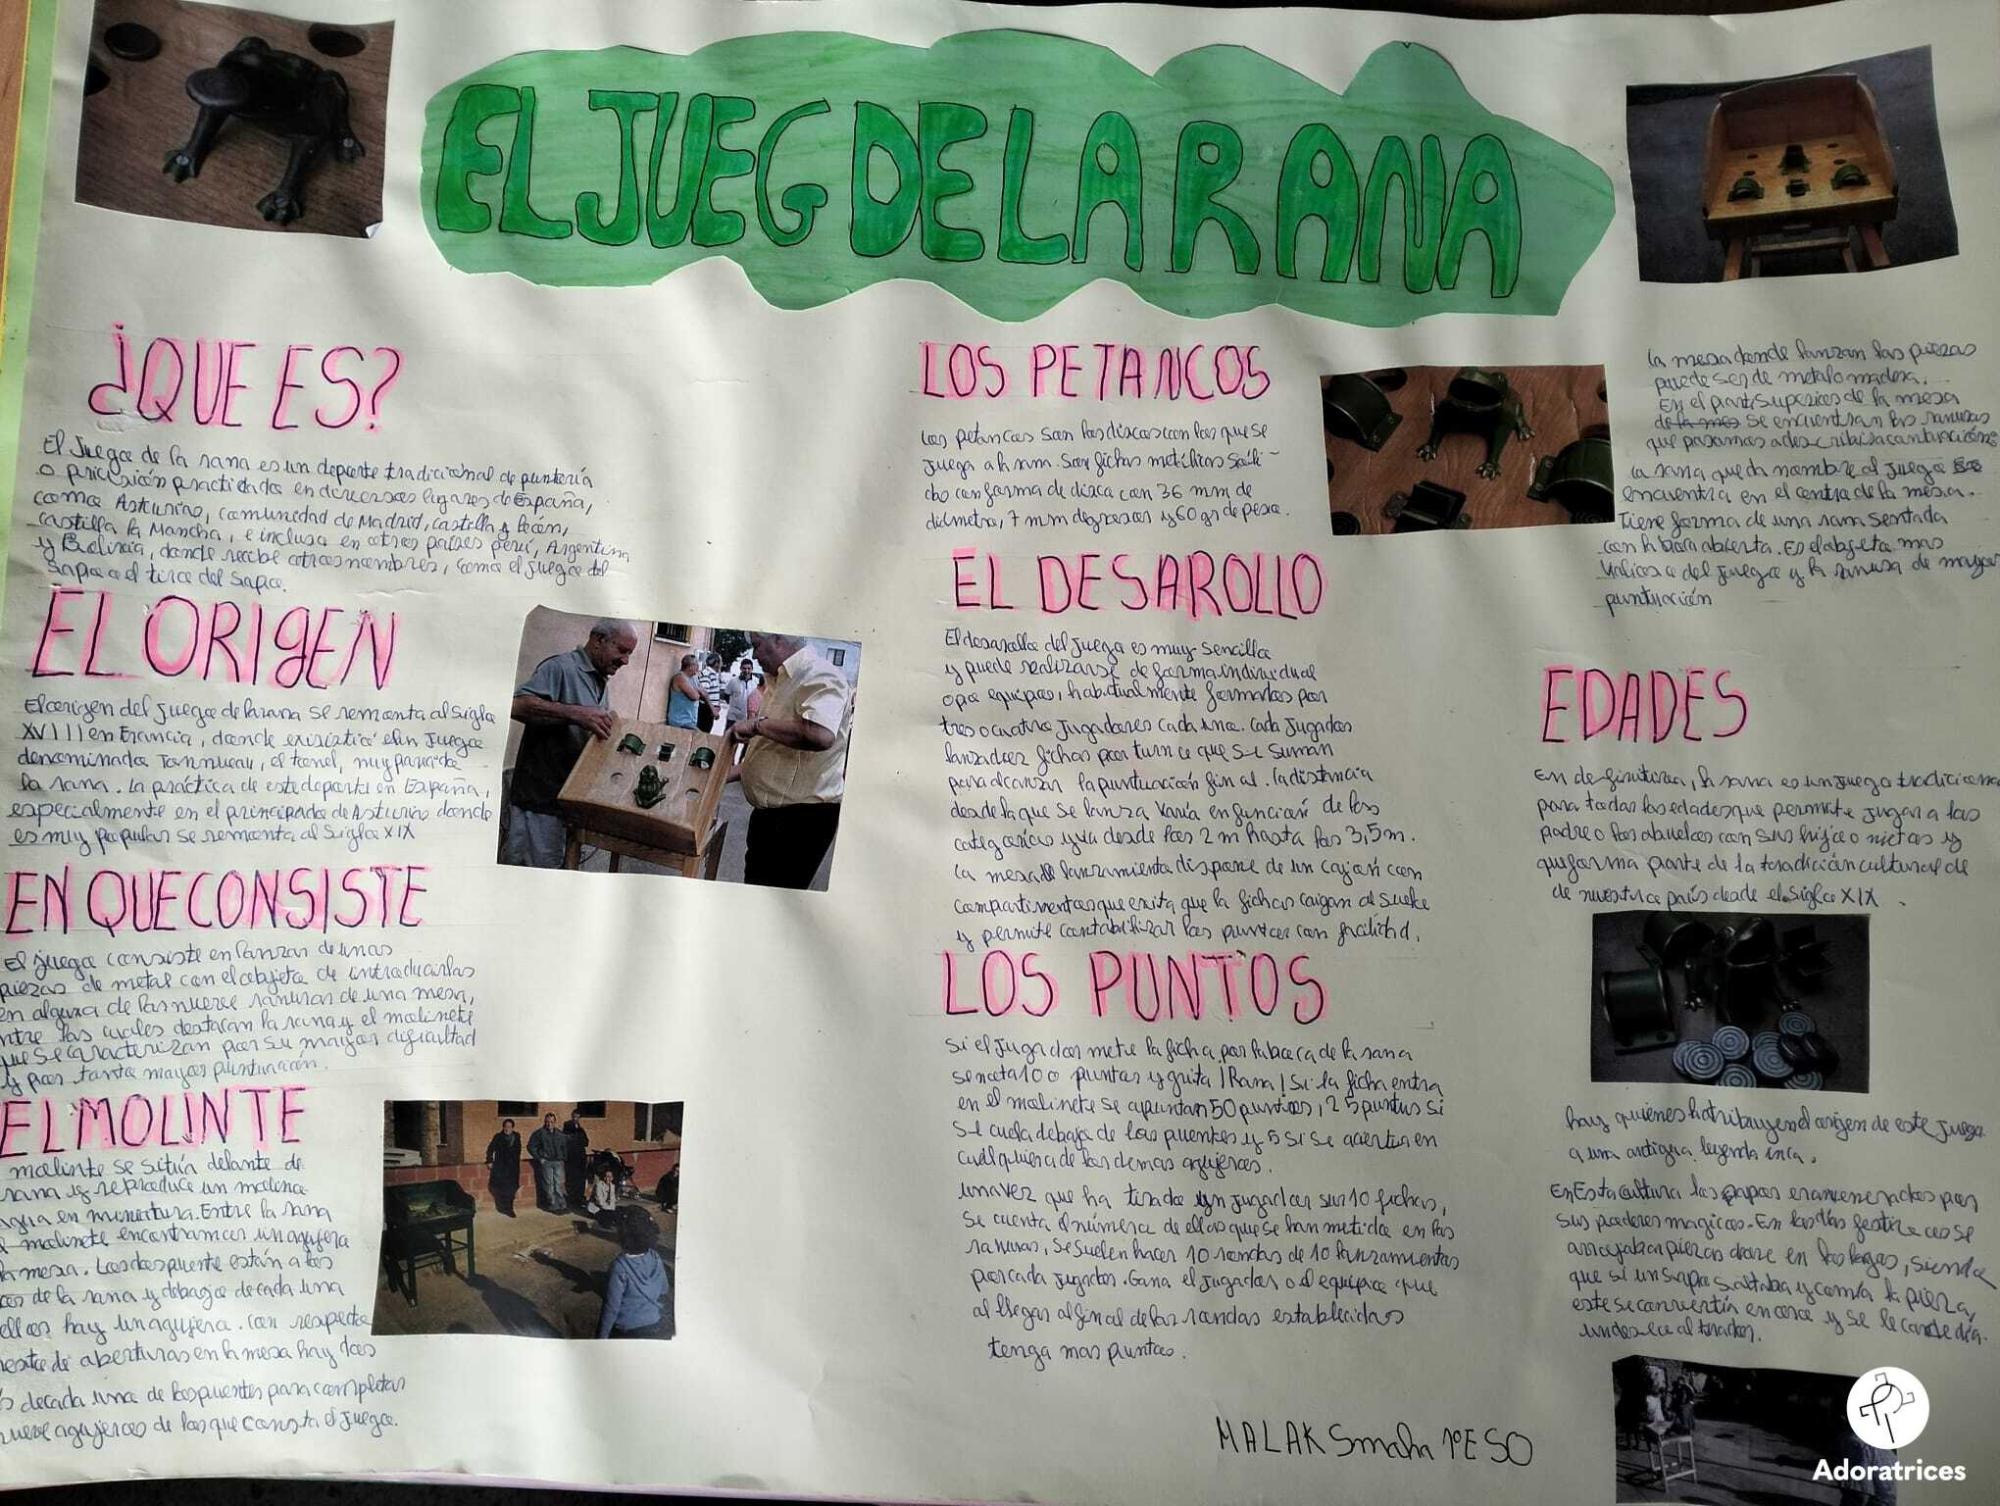 EL JUEG DE LA RANA
¿QUE ES?
El Juego de la rana es un deporte tradicional de puntería
o pricisión practicado en diversos lugares de España,
como Asturias, comunidad de Madrid, castilla y León,
castilla la Mancha, e incluso en otros países perú, Argentina
y Bolivia, donde recibe otros nombres, como el juego del
sapo o el tiro del sapo.
EL ORIGEN
El origen del juego de la rana se remonta al Siglo
XVIII en Francia, donde existió un juego
denominado Tonneau, el tonel, muy parecido
la rana. La práctica de este deporte en España,
especialmente en el principado de Asturias donde
es muy popular se remonta al Siglo XIX
EN QUE CONSISTE
El juego consiste en lanzar de unas
piezas de metal con el objeto de introducirlas
en alguna de las nueve ranuras de una mesa,
ntre las cuales destacan la rana y el molinete
que se caracterizan por su mayor dificultad
y por tanto mayor puntuación.
EL MOLINTE
molinte se sitúa delante de
rana y reproduce un molino
agua en miniatura. Entre la rana
molinete encontramos un agujero
la mesa. Los dos puente están a los
de la rana y debajo de cada una
ellos hay un agujero. con respecto
resto de aberturas en la mesa hay dos
decada una de los puentes para completar
nueve agujeros de los que consta el juego.
LOS PETANCOS
Los petancos son los discos con los que se
juega a la rana. Son fichas metálicas
con forma de disco con 36 mm de
diámetro, 7 mm de grosor y 60 gr de peso.
EL DESAROLLO
El desarollo del juego es muy sencillo
y puede realizarse de forma individual
o por equipos, habitualmente formados por
tres o cuatro jugadores cada uno. Cada jugador
lanza diez fichas por turno que se suman
para alcanzar la puntuación final. la distancia
desde la que se lanza varía en función de las
categorías y va desde los 2 m hasta los 3,5 m.
La mesa de lanzamiento dispone de un cajón con
compartimentos que evita que la fichas caigan al suelo
y permite contabilizar los puntos con facilidad.
LOS PUNTOS
Si el jugador mete la ficha por la boca de la rana
se nota 100 puntos y grita ¡Rana! Si la ficha entra
en el molinete se apuntan 50 puntos, 25 puntos si
se cuela debajo de los puentes y 5 si se acierta en
cualquiera de los demas agujeros.
una vez que ha tirado un jugador sus 10 fichas,
se cuenta el número de ellos que se han metido en las
ranuras, se suelen hacer 10 rondas de 10 lanzamientos
por cada jugador. Gana el jugador o el equipo que
al llegar al final de las rondas establecidas
tenga mas puntos.
MALAK Smaha 1º ESO
la mesa donde lanzan las piezas
puede ser de metal o madera.
En el part superior de la mesa
se encuentran las ranuras
que pasamos a describir a continuación:
La rana que da nombre al juego se
encuentra en el centro de la mesa.
Tiene forma de una rana sentada
con la boca abierta. Es el objeto mas
valioso del juego y la ranura de mayor
puntuación
EDADES
En definitiva, la rana es un juego tradiciona
para todas las edades que permite jugar a los
padre o los abuelos con sus hijo o nietos y
que forma parte de la tradición cultural de
de nuestro país desde el siglo XIX.
hay quiénes hatribuyen el origen de este juego
a una antigua leyenda inca.
En Esta cultura los sapos eran venerados por
sus poderes magicos. En los días festivos se
arrojaban piezas de oro en los lagos, siendo
que si un sapo saltaba y comía la pieza,
este se convertía en oro y se le concedía
un deseo al tirador.
Adoratrices